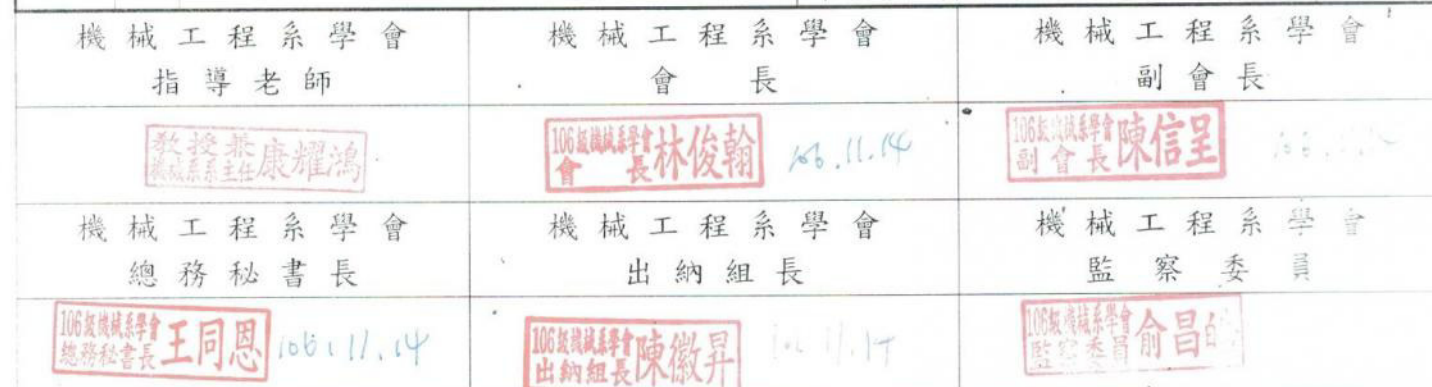 機械工程系學會
指導老師
機械工程系學會
會長
機械工程系學會
副會長
教授兼
機械系系主任康耀鴻
106級機械系學會
會長林俊翰
106.11.14
106級機械系學會
副會長陳信呈
機械工程系學會
總務秘書長
機械工程系學會
出納組長
機械工程系學會
監察委員
106級機械系學會
總務秘書長王同恩
106.11.14
106級機械系學會
出納組長陳徽昇
11.14
106級機械系學會
監察委員俞昌